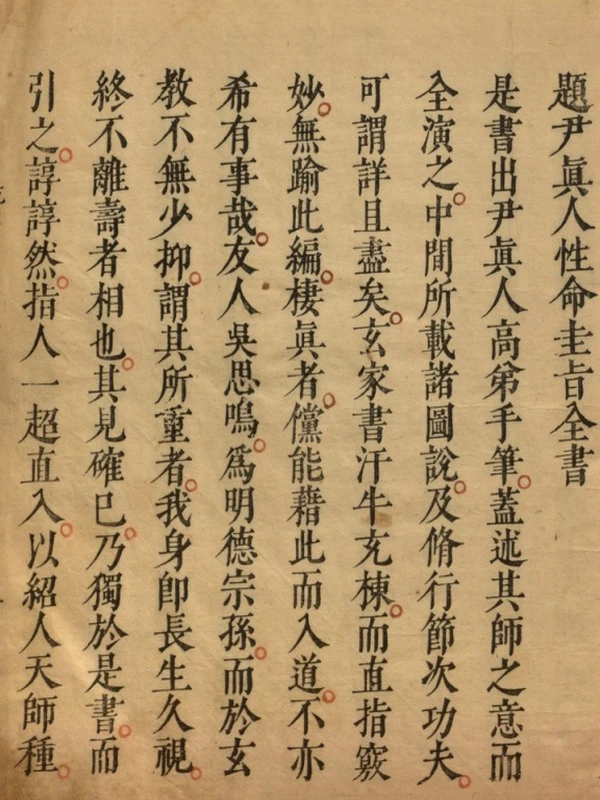 題尹眞人性命圭旨全書
是書出尹眞人高弟手筆蓋述其師之意而
全演之中間所載諸圖說及脩行節次功夫
可謂詳且盡矣玄家書汗牛充棟而直指竅
妙無踰此編棲眞者儻能藉此而入道不亦
希有事哉友人吳思鳴爲明德宗孫而於玄
教不無少抑謂其所重者我身卽長生久視
終不離壽者相也其見確已乃獨於是書而
引之諄諄然指人一超直入以紹人天師種